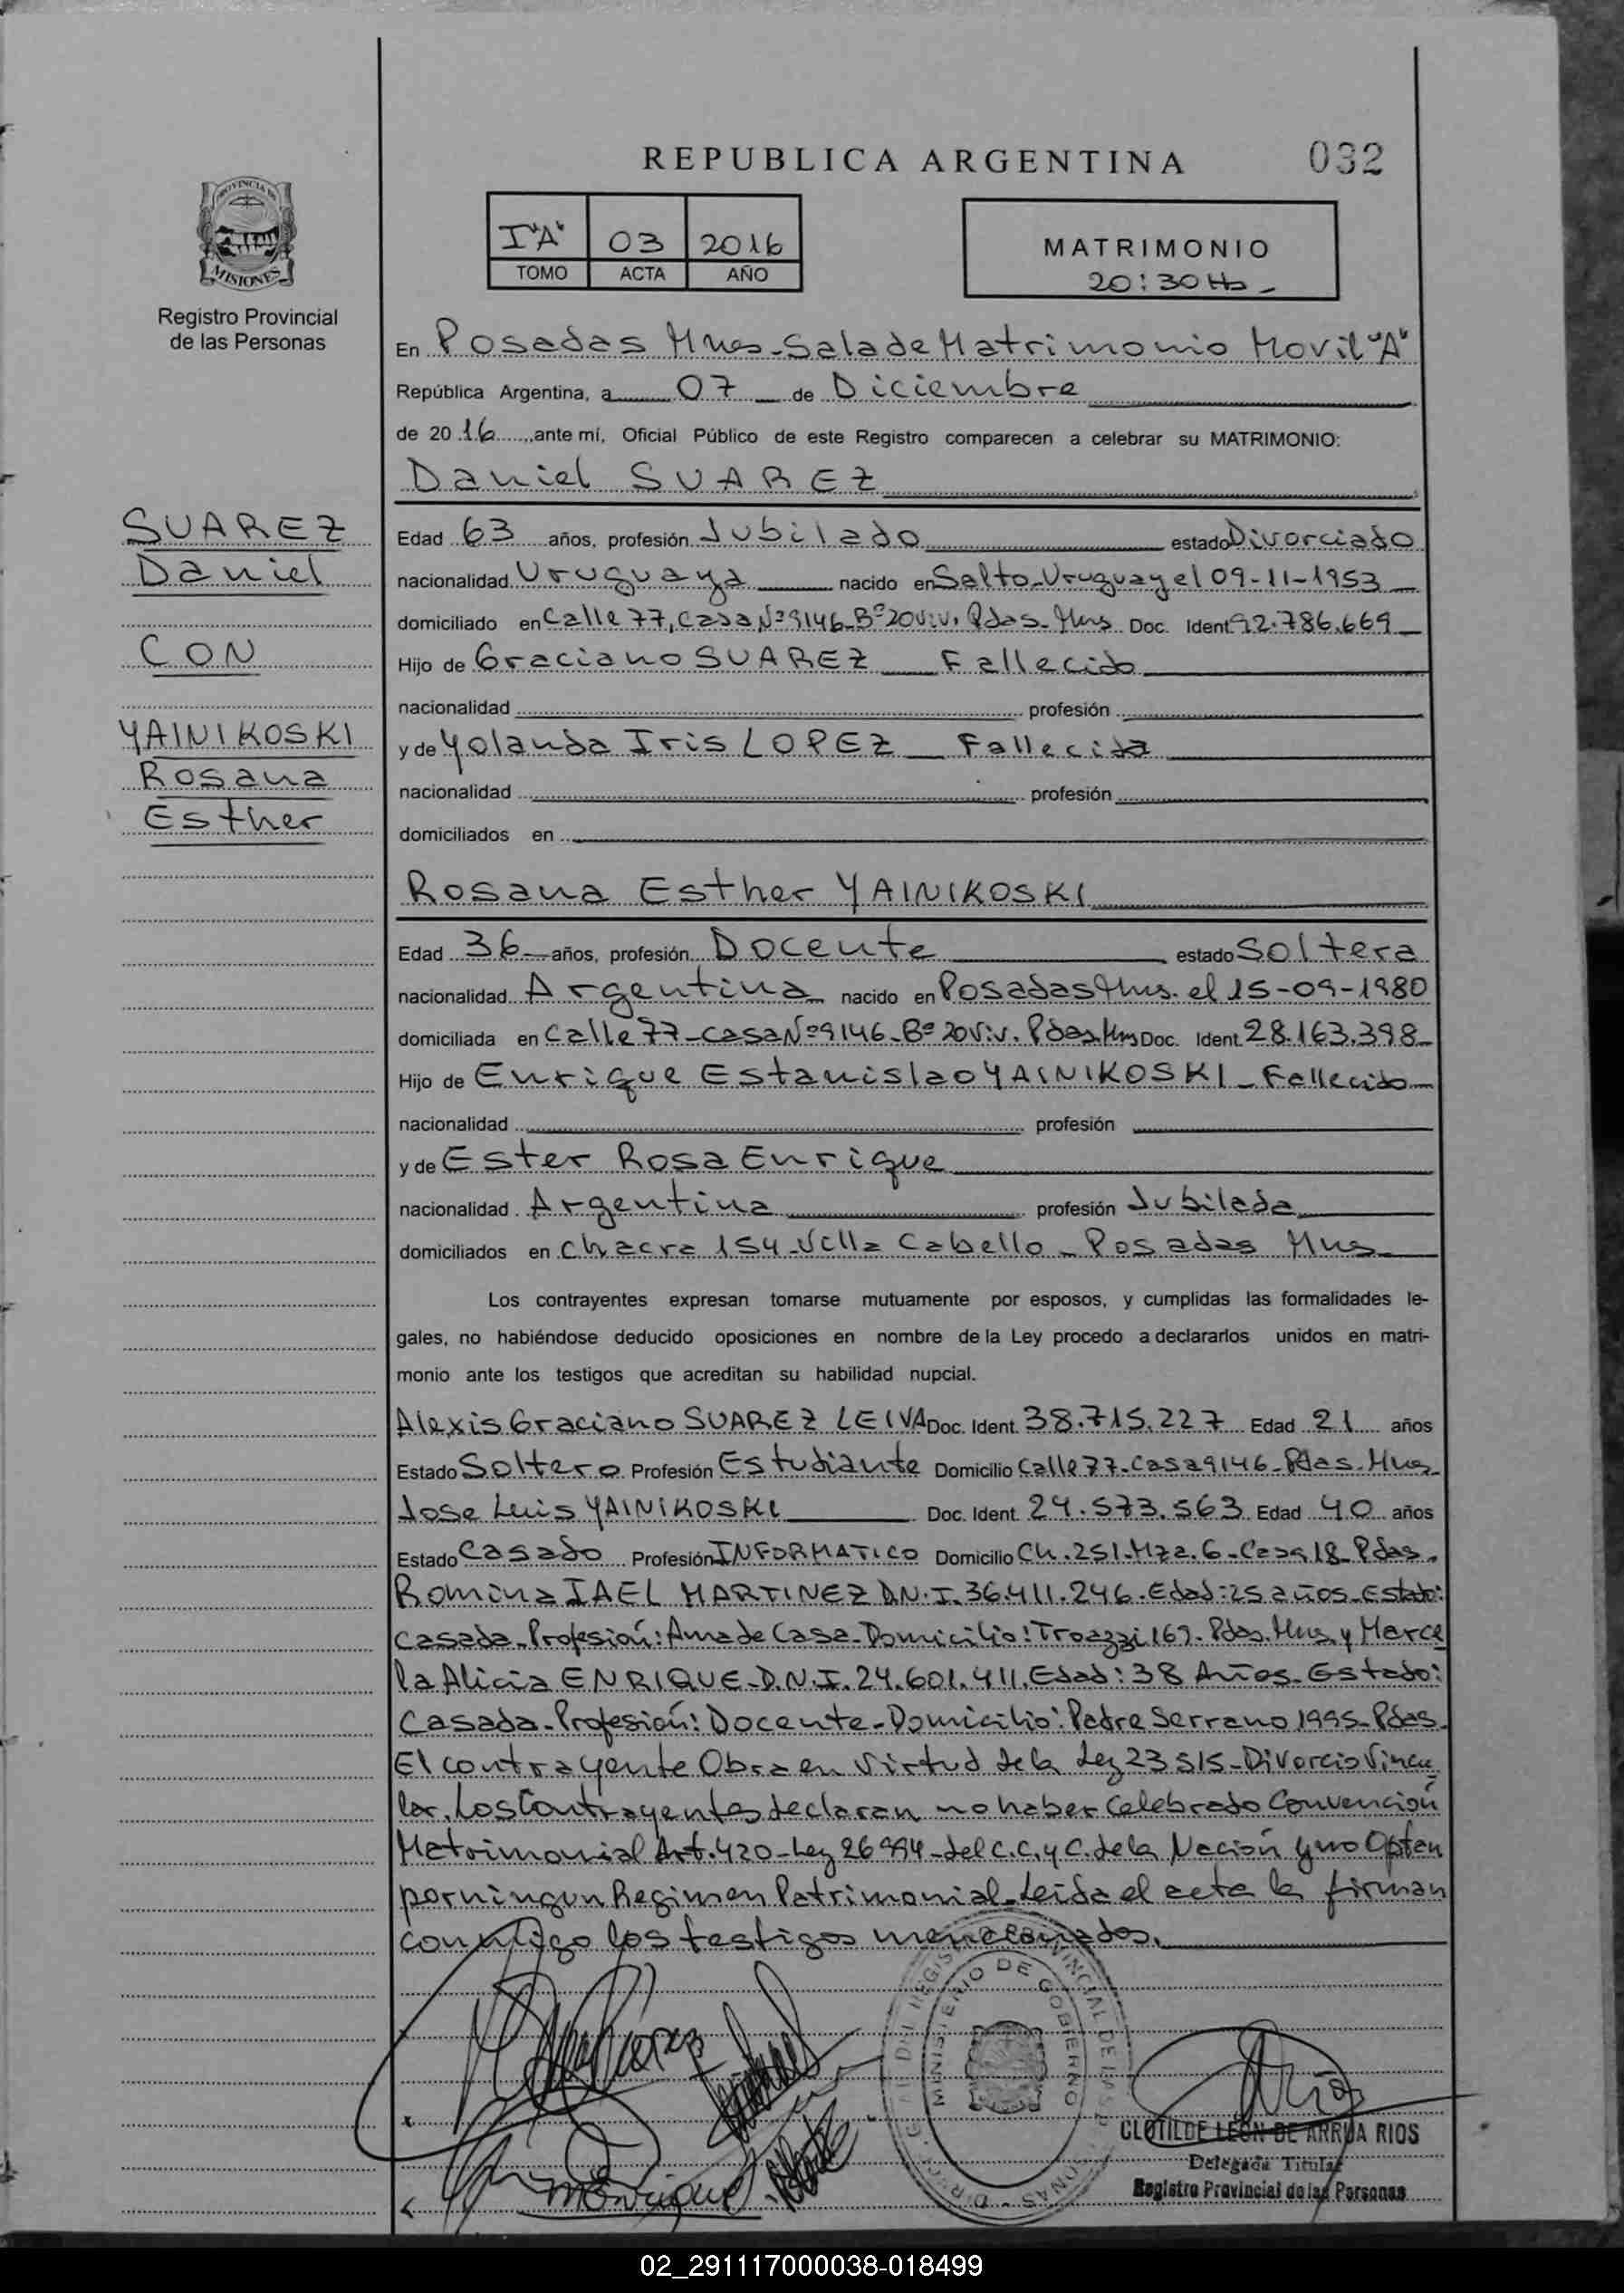 REPUBLICA ARGENTINA
032
PROVINCIA DE
MISIONES
Registro Provincial
de las Personas
I"A" 03 2016
TOMO ACTA AÑO
MATRIMONIO
20:30 Hs -
En Posadas Mnes-Sala de Matrimonio Movil "A"
República Argentina, a 07 de Diciembre
de 2016, ante mí, Oficial Público de este Registro comparecen a celebrar su MATRIMONIO:
Daniel SUAREZ
SUAREZ
Daniel
CON
YAINIKOSKI
Rosana
Esther
Edad 63 años, profesión Jubilado estado Divorciado
nacionalidad Uruguaya nacido en Salto-Uruguay el 09-11-1953
domiciliado en Calle 77, Casa Nº 9146-Bº 20 Viv. Pdas-Mns Doc. Ident 92.786.669
Hijo de Graciano SUAREZ Fallecido
nacionalidad profesión
y de Yolanda Iris LOPEZ Fallecida
nacionalidad profesión
domiciliados en
Rosana Esther YAINIKOSKI
Edad 36 años, profesión Docente estado Soltera
nacionalidad Argentina nacido en Posadas Mns. el 15-09-1980
domiciliada en Calle 77-Casa Nº 9146-Bº 20 Viv. Pdas. Mns Doc. Ident. 28.163.398
Hijo de Enrique Estanislao YAINIKOSKI - Fallecido
nacionalidad profesión
y de Ester Rosa Enrique
nacionalidad Argentina profesión Jubilada
domiciliados en Chacra 154-Villa Cabello - Posadas Mns
Los contrayentes expresan tomarse mutuamente por esposos, y cumplidas las formalidades le-
gales, no habiéndose deducido oposiciones en nombre de la Ley procedo a declararlos unidos en matri-
monio ante los testigos que acreditan su habilidad nupcial.
Alexis Graciano SUAREZ LEIVA Doc. Ident. 38.715.227 Edad 21 años
Estado Soltero Profesión Estudiante Domicilio Calle 77-Casa 9146-Pdas-Mns
Jose Luis YAINIKOSKI Doc. Ident. 24.573.563 Edad 40 años
Estado Casado Profesión INFORMATICO Domicilio Ch. 251-Mza. 6-Casa 18-Pdas.
Romina IAEL MARTINEZ D.N.I. 36.411.246-Edad: 25 años-Estado:
Casada-Profesión: Ama de Casa-Domicilio: Troazzi 167-Pdas. Mns y Marce
la Alicia ENRIQUE-D.N.I. 24.601.411. Edad: 38 Años-Estado:
Casada-Profesión: Docente-Domicilio: Padre Serrano 1995-Pdas.
El contrayente Obra en Virtud de la Ley 23515-Divorcio Vincu
lar. Los Contrayentes declaran no haber Celebrado Convención
Matrimonial Art. 420-Ley 26994-del C.C. y C. de la Nación y no Optan
por ningun Regimen Patrimonial-Leida el acta la firman
conmigo los testigos mencionados.
MINISTERIO DE GOBIERNO
CLOTILDE LEON DE ARRUA RIOS
Delegada Titular
Registro Provincial de las Personas
02_291117000038-018499